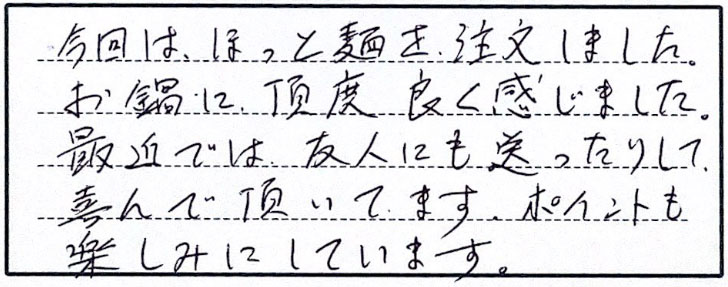 今回は、ほっと麺を、注文しました。
お鍋に、頂度良く感じました。
最近では、友人にも送ったりして、
喜んで頂いてます。ポイントも
楽しみにしています。